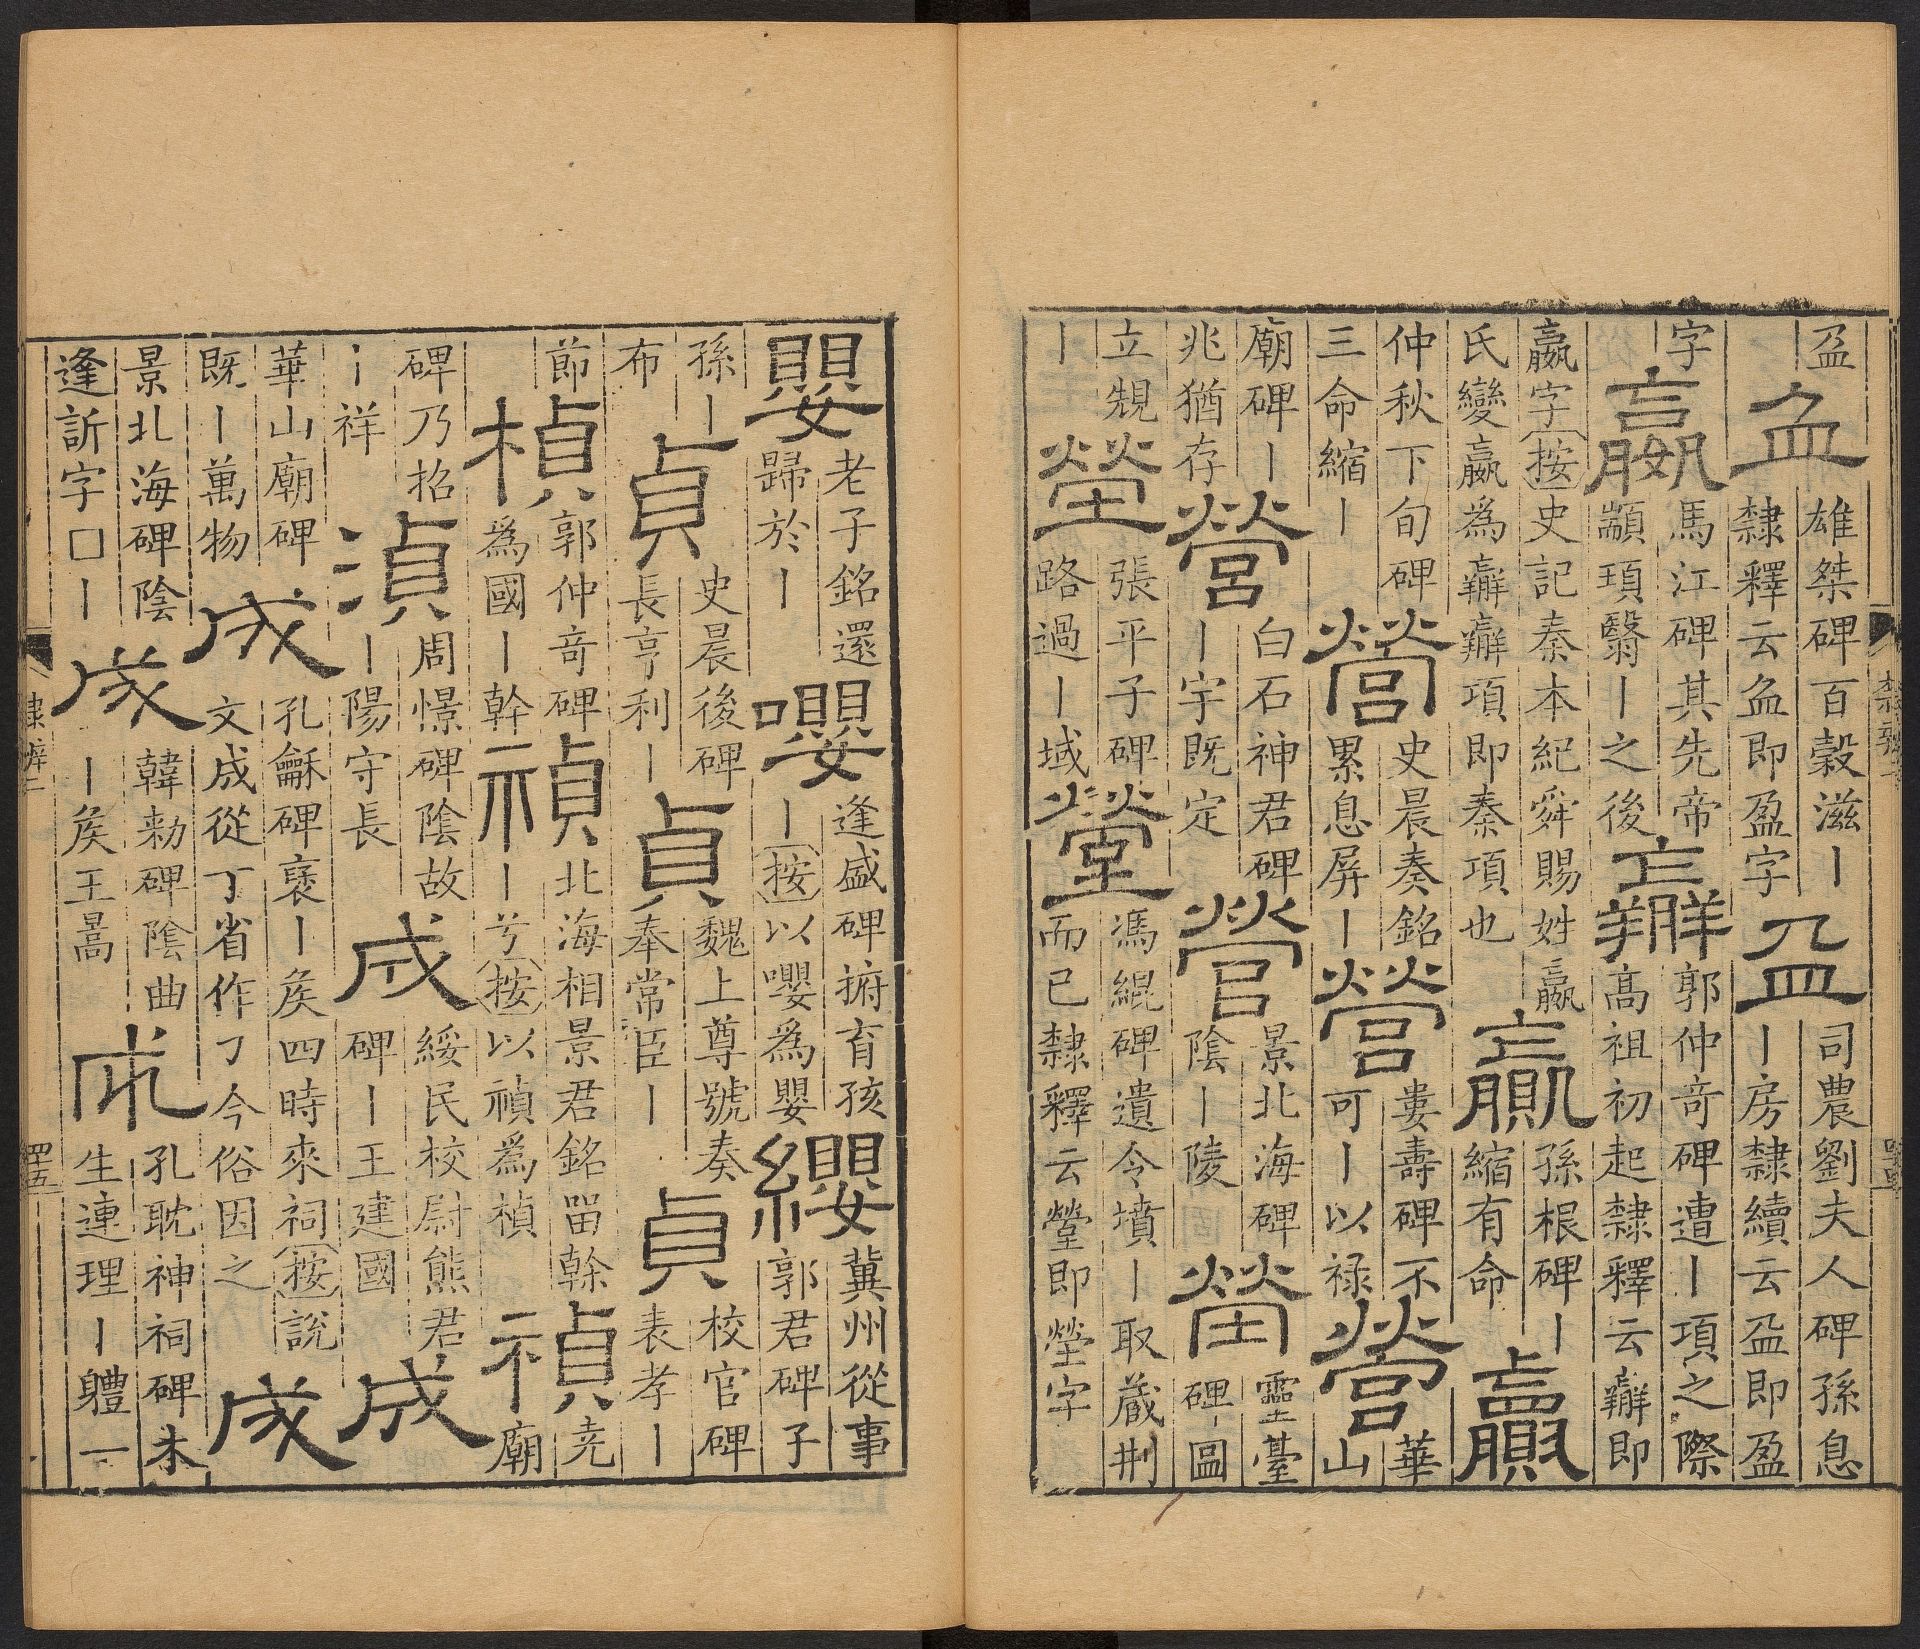 盈盁雄桀碑百穀滋丨隸釋云盁即盈字盁司農劉夫人碑孫息丨房隸續云盁即盈
字嬴馬江碑丨其先帝顓頊翳丨之後𦎦郭仲奇碑遭丨項之際高祖初起隸釋云𦎦即
嬴字按史記秦本紀舜賜姓嬴氏變嬴為𦎦𦎦項即秦項也贏孫根碑丨縮有命贏
仲秋下旬碑三命縮丨營史晨奏銘累息屏丨營婁壽碑不可丨以禄營華山
廟碑丨兆猶存營白石神君碑丨宇既定營景北海碑陰丨陵塋靈臺碑圖
立䂓丨塋張平子碑路過丨域塋馮緄碑遺令墳丨取藏荆而已隸釋云塋即塋字
嬰老子銘還歸於丨嚶逢盛碑捬育孩丨按以嚶為嬰纓冀州從事郭君碑子
孫丨布貞史晨後碑長亨利丨貞魏上尊號奏奉常臣丨貞校官碑表孝丨
節楨郭仲奇碑為國丨幹禎北海相景君銘㽞幹丨兮按以禎為楨禎尭廟
碑乃招丨祥湞周憬碑陰故丨陽守長成綏民校尉熊君碑丨王建國成
華山廟碑既丨萬物成孔龢碑襃丨矦四時來祠按說文成從丁省作丁今俗因之成
景北海碑陰逢訢字□丨成韓勑碑陰曲丨矦王暠成孔耽神祠碑木生連理丨軆一
隸辨二
四五